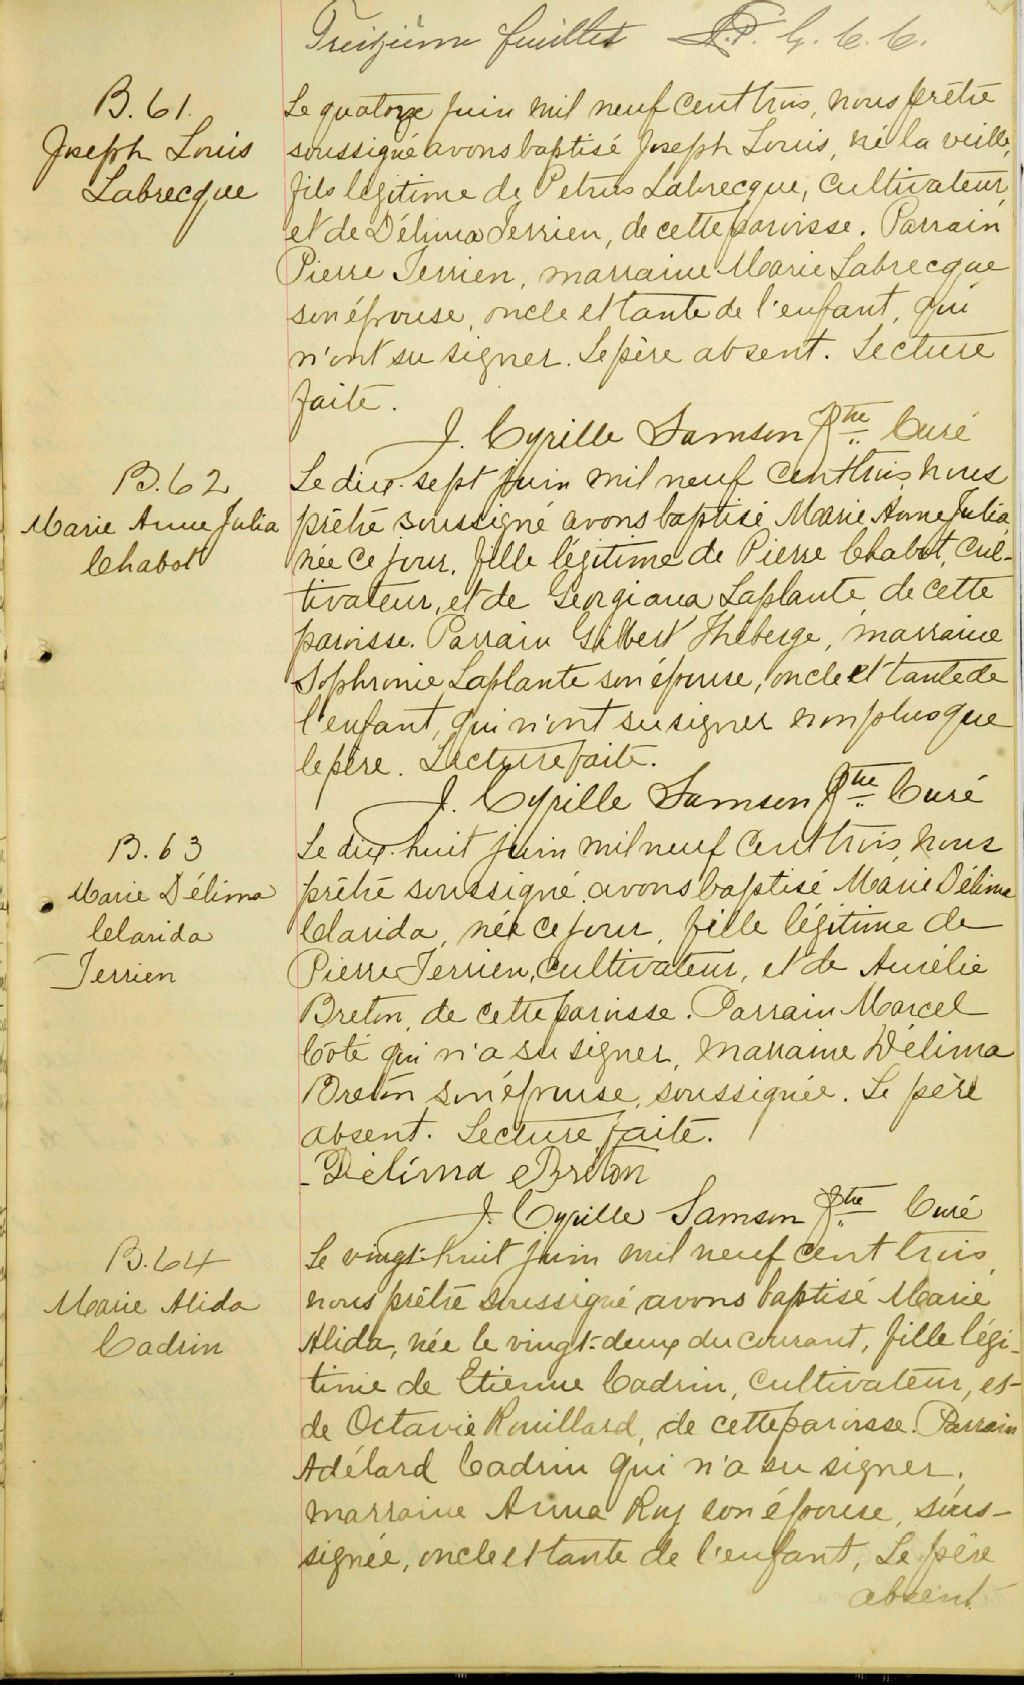 Treizième feuillet L.P. G. C. C.
B. 61.
Joseph Louis
Labrecque
Le quatorze juin mil neuf cent trois, nous prêtre
soussigné avons baptisé Joseph Louis, né la veille,
fils légitime de Petrus Labrecque, cultivateur,
et de Délima Terrien, de cette paroisse. Parrain
Pierre Terrien, marraine Marie Labrecque
son épouse, oncle et tante de l'enfant, qui
n'ont su signer. Le père absent. Lecture
faite.
J. Cyrille Samson Ptre Curé
B. 62
Marie Anne Julia
Chabot
Le dix-sept juin mil neuf cent trois, nous
prêtre soussigné avons baptisé Marie Anne Julia
née ce jour, fille légitime de Pierre Chabot, cul-
tivateur, et de Georgiana Laplante, de cette
paroisse. Parrain Gilbert Théberge, marraine
Sophronie Laplante son épouse, oncle et tante de
l'enfant, qui n'ont su signer non plus que
le père. Lecture faite.
J. Cyrille Samson Ptre Curé
B. 63
Marie Délima
Clarida
Terrien
Le dix-huit juin mil neuf cent trois, nous
prêtre soussigné avons baptisé Marie Délima
Clarida, née ce jour, fille légitime de
Pierre Terrien, cultivateur, et de Aurélie
Breton, de cette paroisse. Parrain Marcel
Côté qui n'a su signer, marraine Délima
Breton son épouse, soussignée. Le père
absent. Lecture faite.
Délima Breton
J. Cyrille Samson Ptre Curé
B. 64
Marie Alida
Cadrin
Le vingt-huit juin mil neuf cent trois,
nous prêtre soussigné avons baptisé Marie
Alida, née le vingt-deux du courant, fille légi-
time de Etienne Cadrin, cultivateur, et
de Octavie Rouillard, de cette paroisse. Parrain
Adélard Cadrin qui n'a su signer,
marraine Anna Roy son épouse, sous-
signée, oncle et tante de l'enfant, Le père
absent.